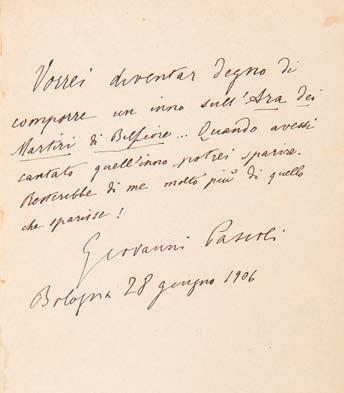 Vorrei diventar degno di
comporre un inno sull'Ara dei
Martiri di Belfiore... Quando avessi
cantato quell'inno, potrei sparire.
Resterebbe di me molto più di quello
che sparisse!
Giovanni Pascoli
Bologna 28 giugno 1906